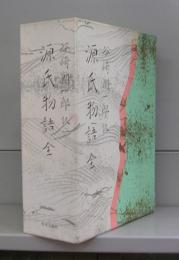 谷崎潤一郎訳
源氏物語 全
谷崎潤一郎訳
源氏物語 全
中央公論社